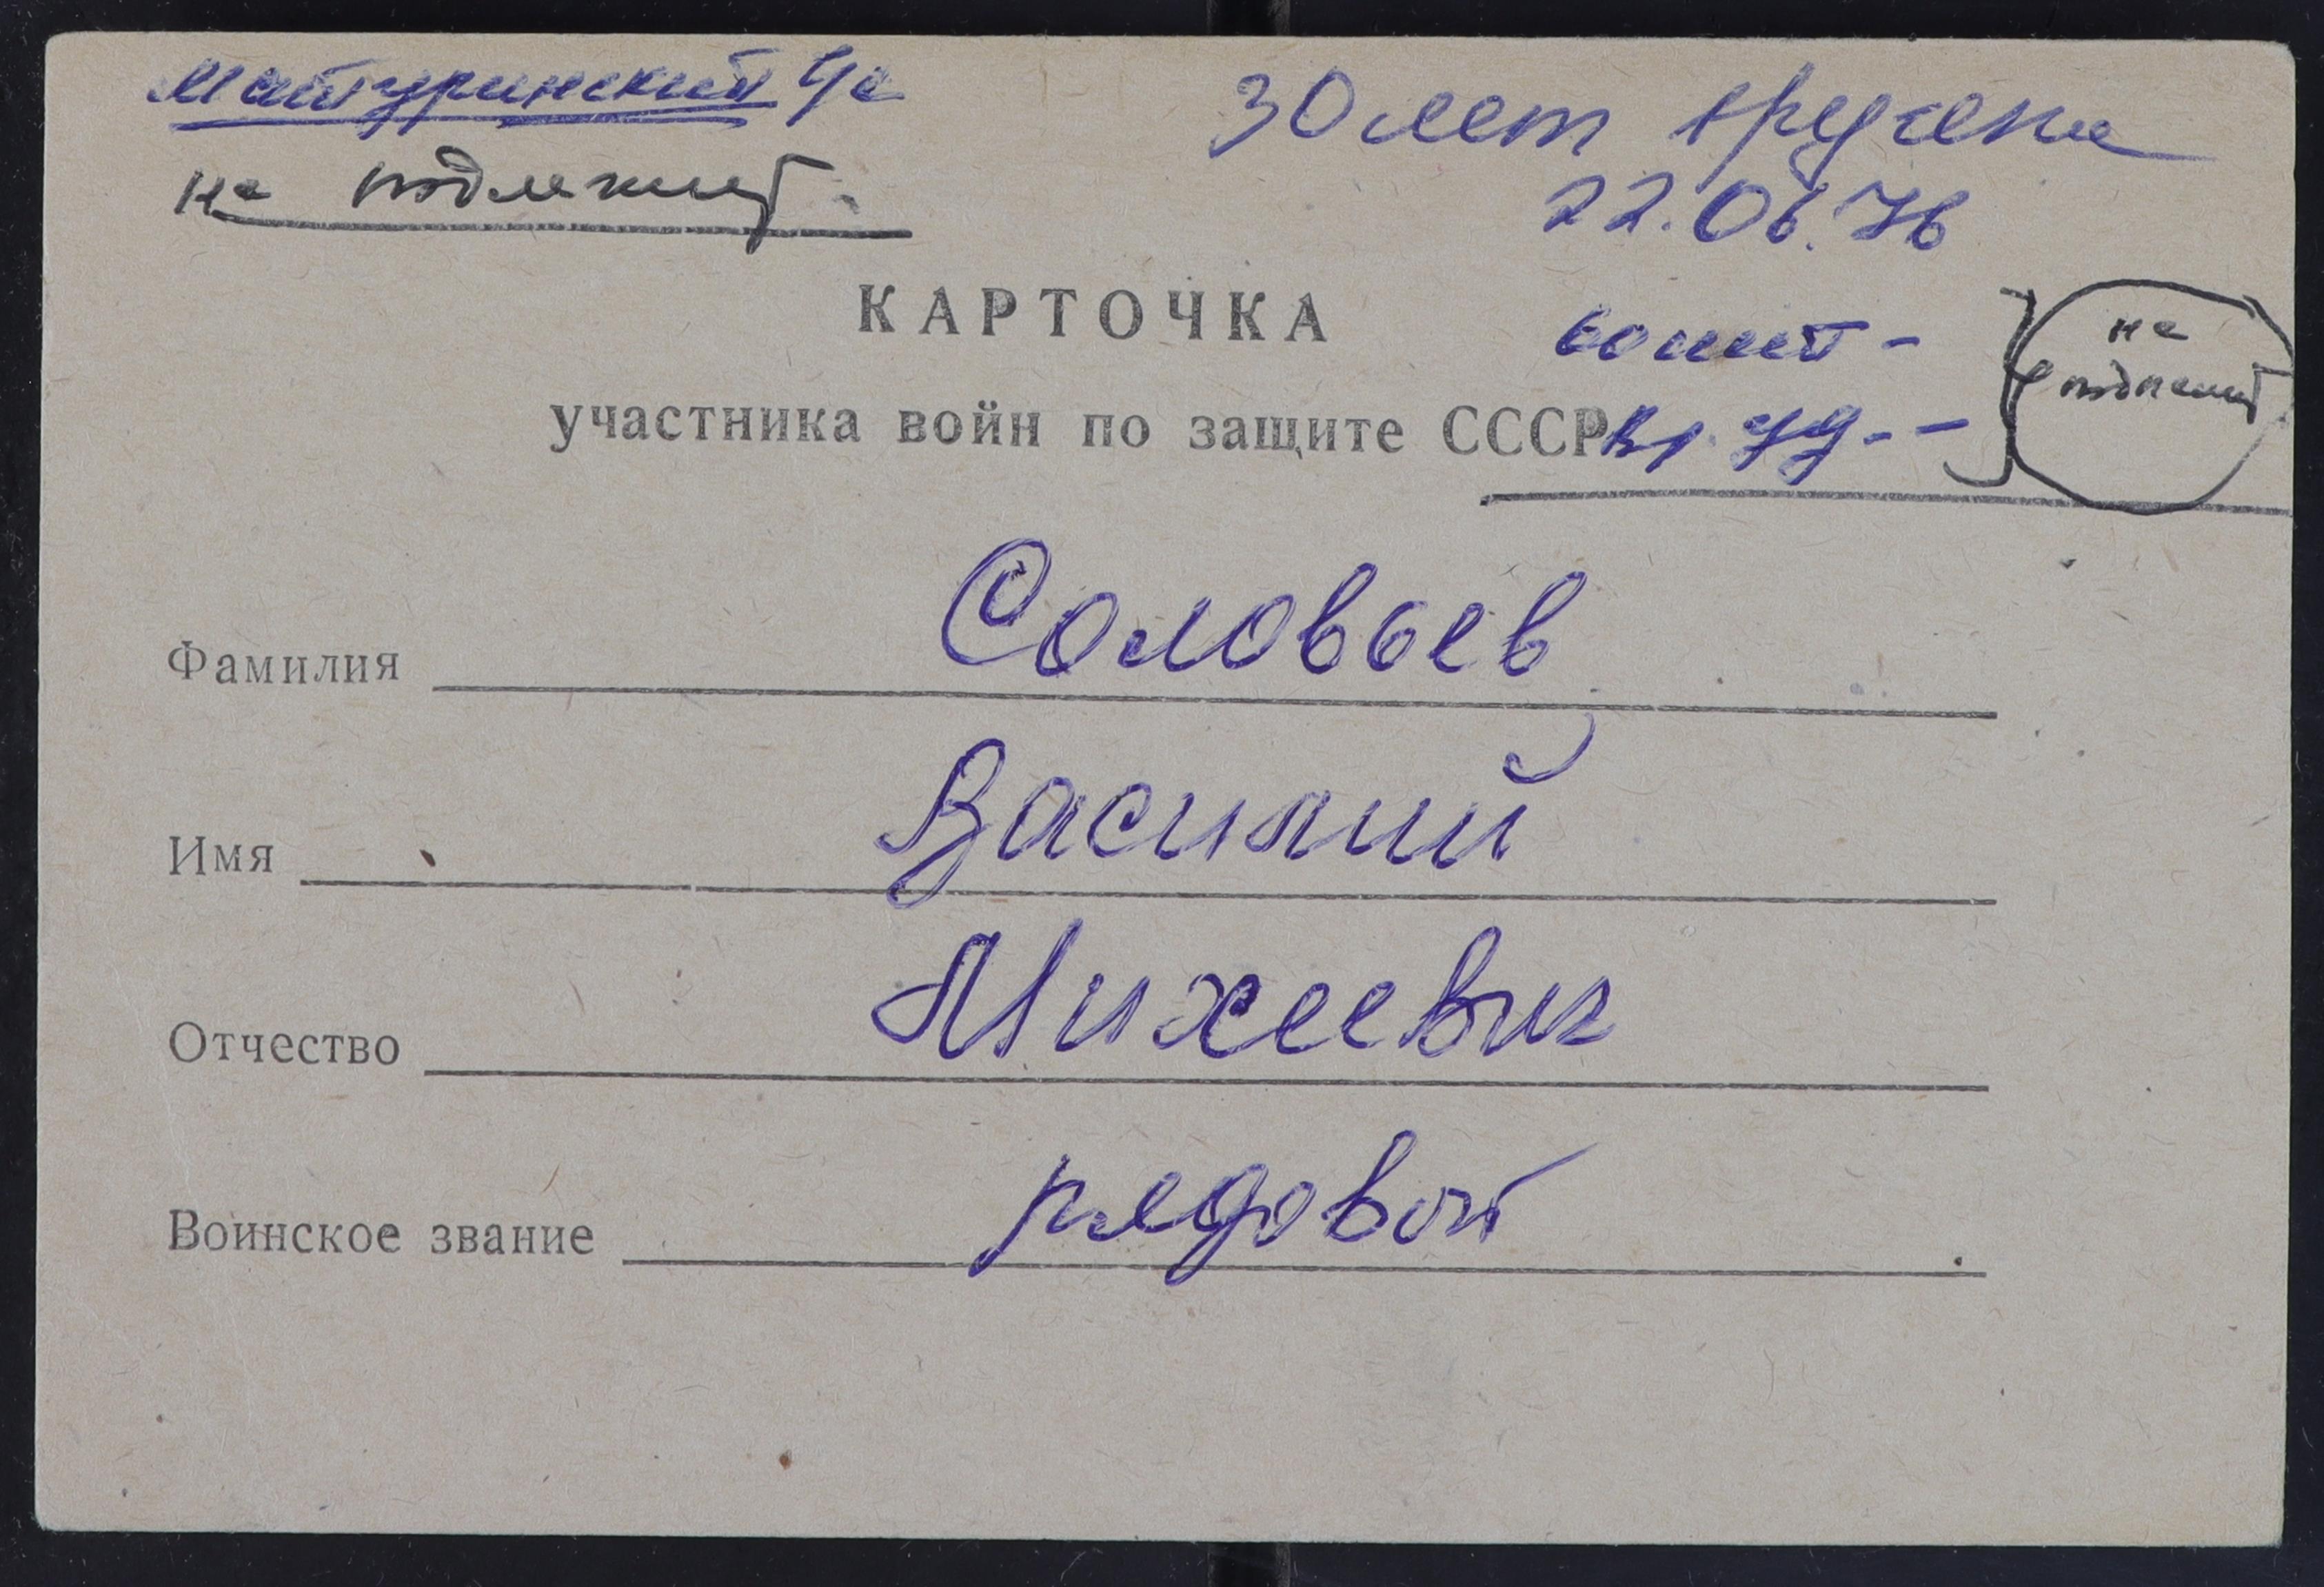 Матуринский с/с
не подлежит.
30 лет вручена
22.06.76
60 лет -
вр. уд. - -
не
подлежит
КАРТОЧКА
участника войн по защите СССР
Фамилия Соловьев
Имя Василий
Отчество Михеевич
Воинское звание рядовой